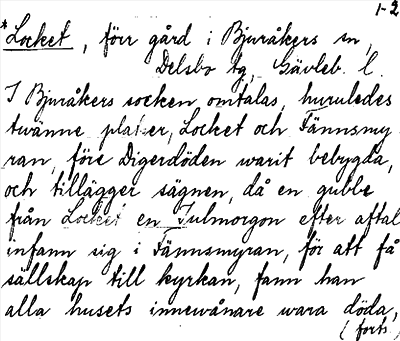 1-2
*Locket, förr gård i Bjuråkers sn,
Delsbo tg, Gävleb. l.
I Bjuråkers socken omtalas, huruledes
twänne platser, Locket och Fännsmy-
ran, före Digerdöden warit bebygda,
och tillägger sägnen, då en gubbe
från Locket en Julmorgon efter aftal
infann sig i Fännsmyran, för att få
sällskap till kyrkan, fann han
alla husets innewånare wara döda,
(forts.)